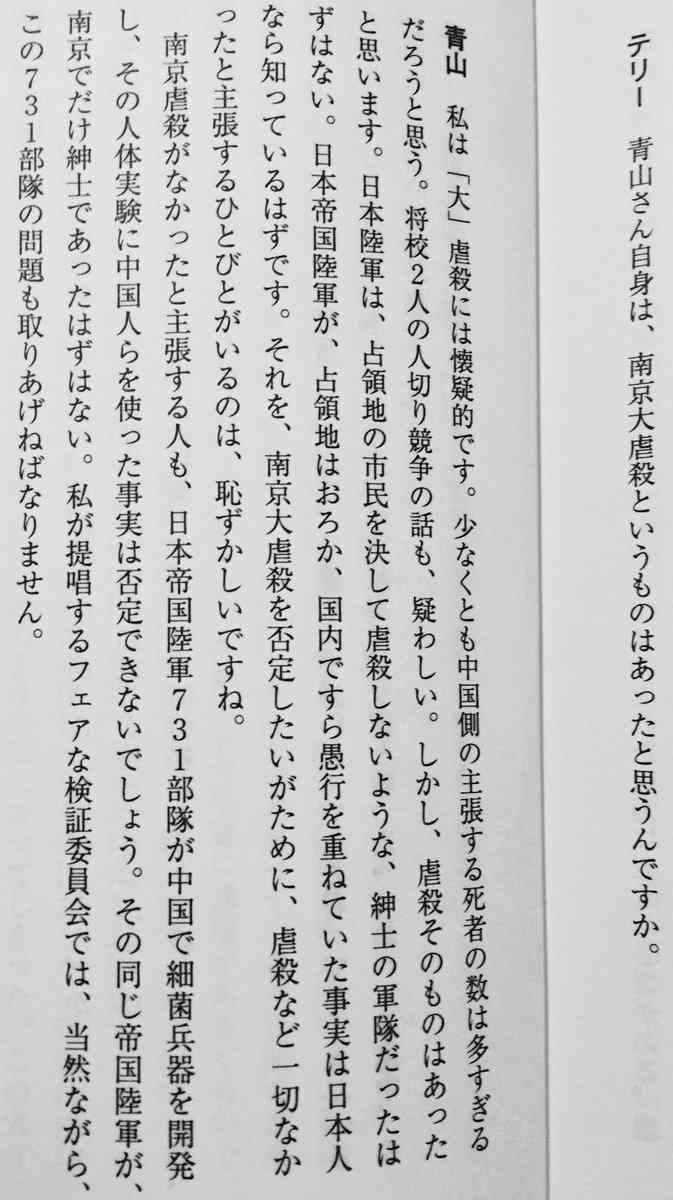 テリー　青山さん自身は、南京大虐殺というものはあったと思うんですか。
青山　私は「大」虐殺には懐疑的です。少なくとも中国側の主張する死者の数は多すぎる
だろうと思う。将校2人の人切り競争の話も、疑わしい。しかし、虐殺そのものはあった
と思います。日本陸軍は、占領地の市民を決して虐殺しないような、紳士の軍隊だったは
ずはない。日本帝国陸軍が、占領地はおろか、国内ですら愚行を重ねていた事実は日本人
なら知っているはずです。それを、南京大虐殺を否定したいがために、虐殺など一切なか
ったと主張するひとびとがいるのは、恥ずかしいですね。
南京虐殺がなかったと主張する人も、日本帝国陸軍731部隊が中国で細菌兵器を開発
し、その人体実験に中国人らを使った事実は否定できないでしょう。その同じ帝国陸軍が、
南京でだけ紳士であったはずはない。私が提唱するフェアな検証委員会では、当然ながら、
この731部隊の問題も取りあげねばなりません。